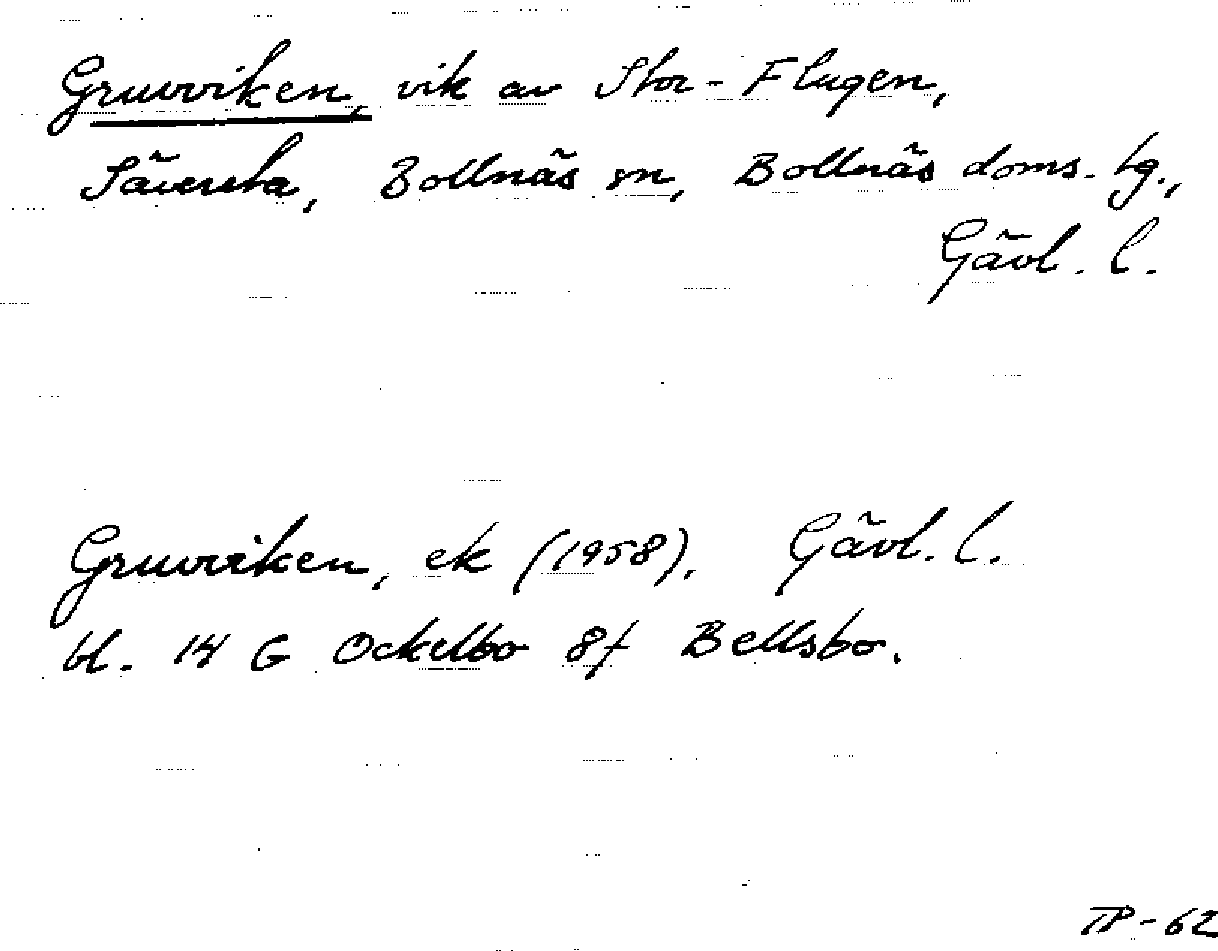 Gruvviken, vik av Stor-Flugen,
Säversta, Bollnäs sn, Bollnäs doms. tg.,
Gävl. l.
Gruvviken, ek (1958), Gävl. l.
bl. 14 G Ockelbo 8f Bellsbo.
TP-62